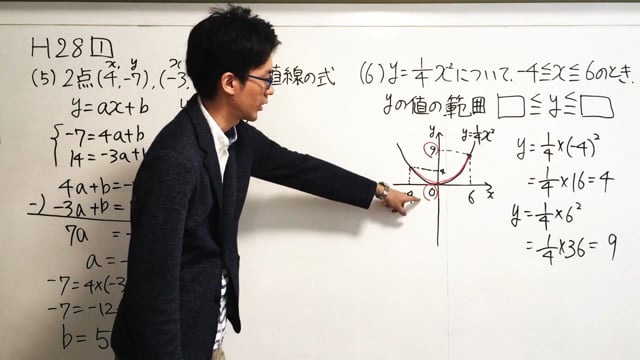 H28 1
(5) 2点(4,-7),(-3, 直線の式
x y x
y=ax+b
-7=4a+b
14=-3a+b
4a+b=-
-) -3a+b=
7a =-
a=-
-7=4×(-3
-7=-12
b=5
(6) y=1/4x²について, -4≦x≦6のとき,
yの値の範囲 □≦y≦□
y y=1/4x²
9
0 6 x
y=1/4×(-4)²
=1/4×16=4
y=1/4×6²
=1/4×36=9